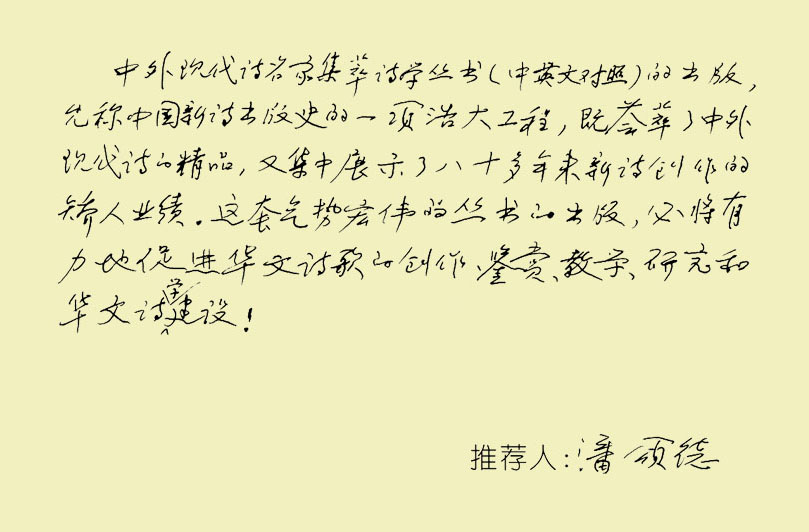 中外现代诗名家集萃诗学丛书(中英文对照)的出版,
允称中国新诗出版史的一项浩大工程,既荟萃了中外
现代诗的精品,又集中展示了八十多年来新诗创作的
骄人业绩。这套气势宏伟的丛书的出版,必将有
力地促进华文诗歌的创作、鉴赏、教学、研究和
华文诗学建设!
推荐人:潘颂德